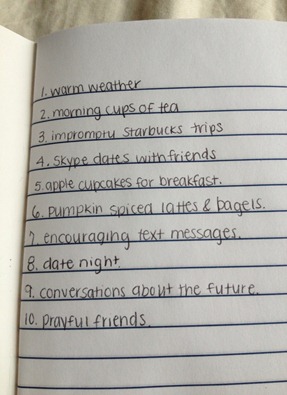 1. warm weather
2. morning cups of tea
3. impromptu starbucks trips
4. skype dates with friends
5. apple cupcakes for breakfast.
6. pumpkin spiced lattes & bagels.
7. encouraging text messages.
8. date night.
9. conversations about the future.
10. prayful friends.